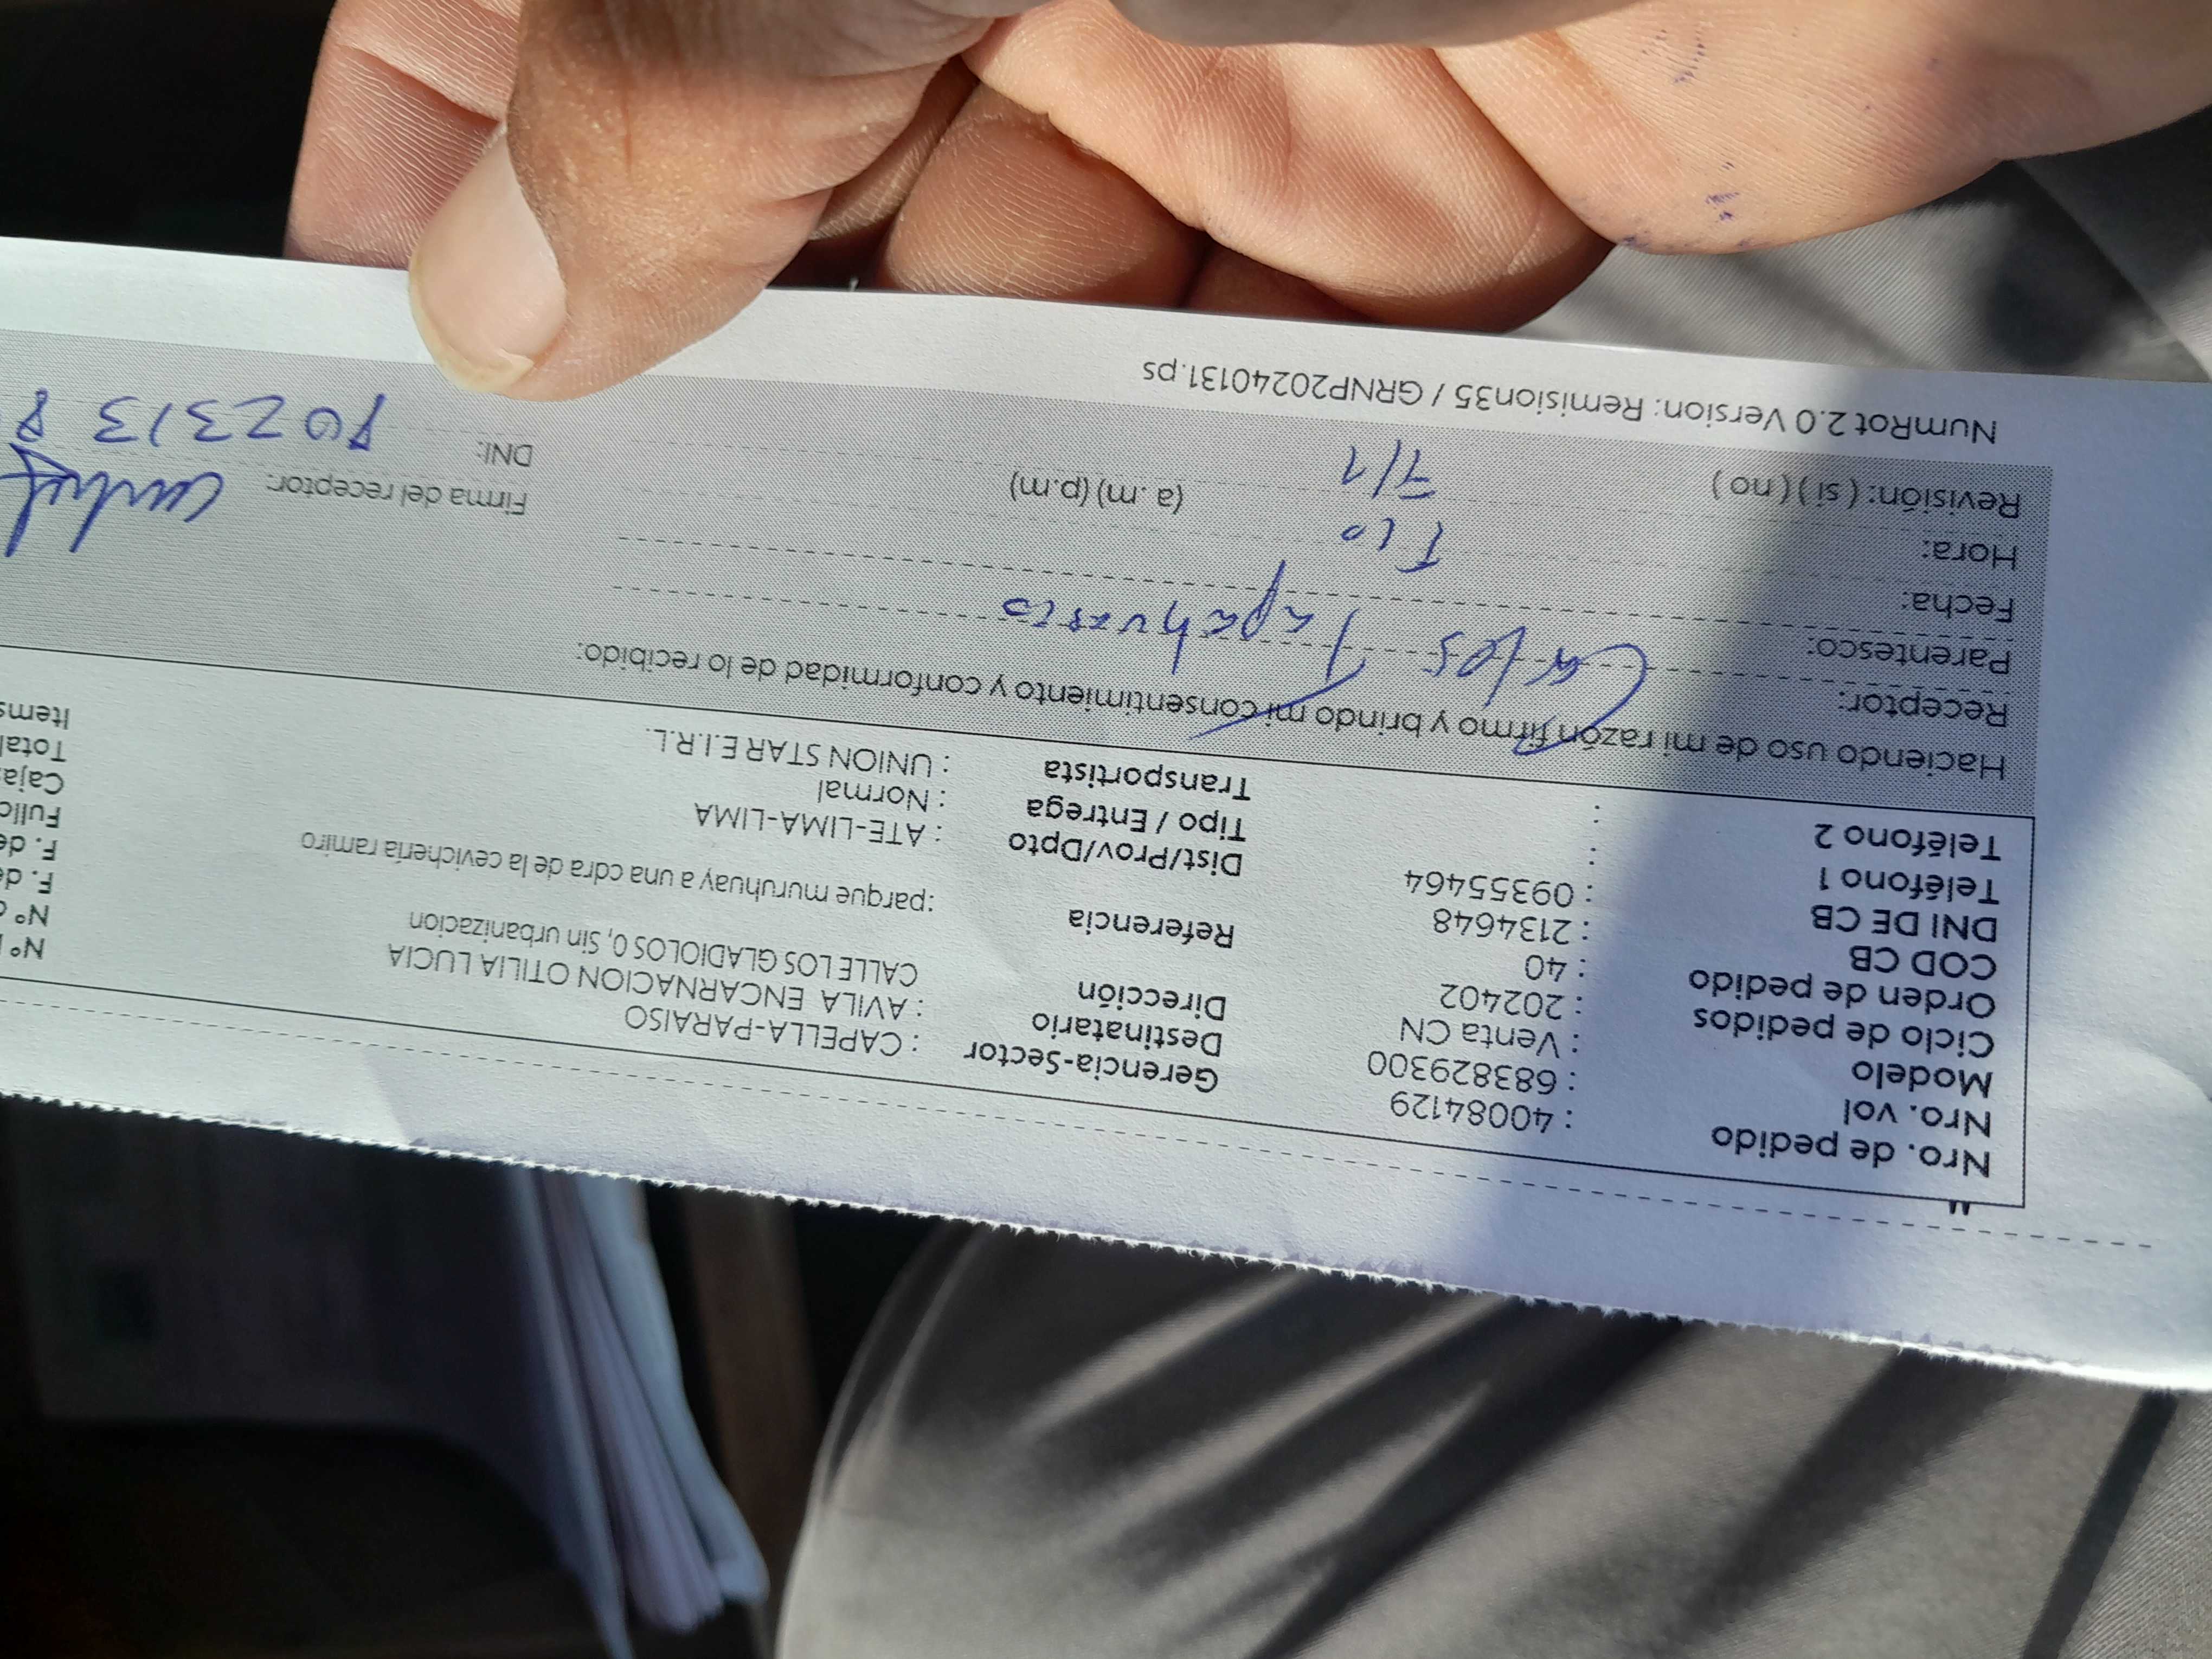 Nro. de pedido : 40084129 Gerencia-Sector : CAPELLA-PARAISO
Nro. vol : 683829300 Destinatario : AVILA ENCARNACION OTILIA LUCIA
Modelo : Venta CN Dirección CALLE LOS GLADIOLOS 0, Sin urbanizacion
Ciclo de pedidos : 202402
Orden de pedido : 40 Referencia :parque muruhuay a una cdra de la cevichería ramiro
COD CB : 2134648
DNI DE CB : 09355464 Dist/Prov/Dpto : ATE-LIMA-LIMA
Teléfono 1 : Tipo / Entrega : Normal
Teléfono 2 : Transportista : UNION STAR E.I.R.L.
Nº
Nº
F. de
F. de
Caja
Total
Items
Haciendo uso de mi razón firmo y brindo mi consentimiento y conformidad de lo recibido:
Receptor: Carlos
Parentesco:
Fecha:
Hora: (a .m) (p.m) Firma del receptor:
Revisión: ( si ) ( no ) DNI:
NumRot 2.0 Version: Remision35 / GRNP20240131.ps